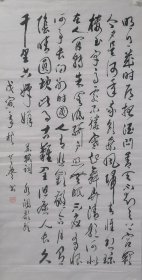 明月幾時有把酒問青天不知天上宮闕
今夕是何年我欲乘風歸去又恐瓊
樓玉宇高處不勝寒起舞弄清影何似
在人間轉朱閣低綺戶照無眠不應有恨
何事長向別時圓人有悲歡離合月有
陰晴圓缺此事古難全但願人長久
千里共嬋娟 東坡詞水調歌頭
戊寅